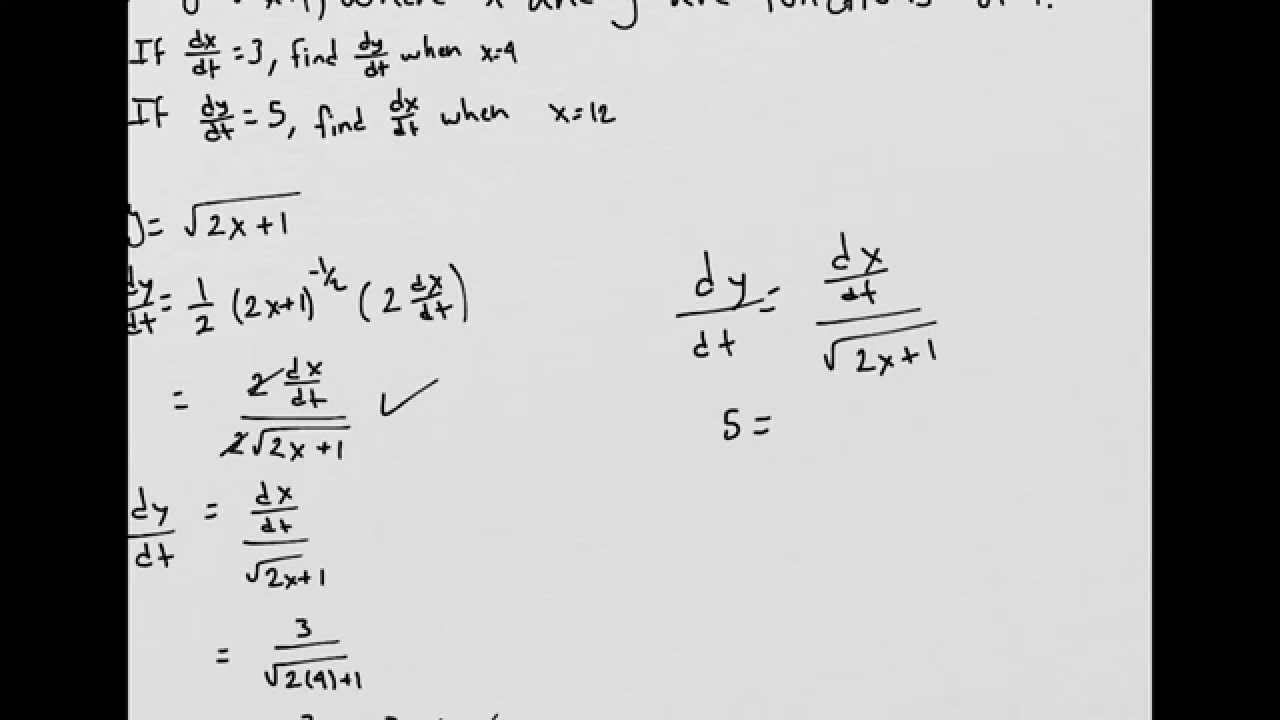 where x and y are functions of t.
If dx/dt = 3, find dy/dt when x=4
If dy/dt = 5, find dx/dt when x=12
y = √(2x+1)
dy/dt = 1/2 (2x+1)^(-1/2) (2 dx/dt)
= (2 dx/dt)/(2√(2x+1)) ✓
dy/dt = (dx/dt)/√(2x+1)
= 3/√(2(4)+1)
dy/dt = (dx/dt)/√(2x+1)
5 =